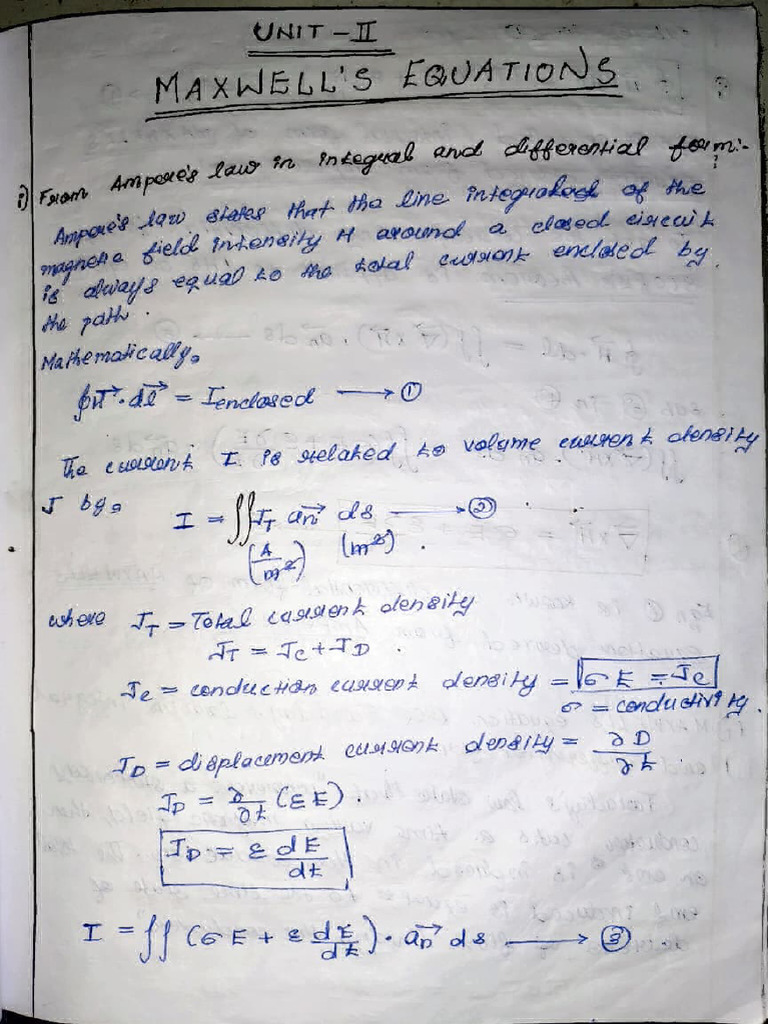 UNIT - II
MAXWELL'S EQUATIONS
i) From Ampere's law in integral and differential form:-
Ampere's law states that the line integral of the
magnetic field intensity H around a closed circuit
is always equal to the total current enclosed by
the path.
Mathematically,
∮H⃗ · dl⃗ = Ienclosed ⟶ ①
The current I is related to volume current density
J by,
I = ∬ J_T a⃗n ds ⟶ ②
(A/m²) (m²) .
where J_T = Total current density
J_T = J_C + J_D .
J_C = conduction current density = σE = J_C
σ = conductivity.
J_D = displacement current density = ∂D/∂t
J_D = ∂/∂t (εE) .
J_D = ε dE/dt
I = ∬ (σE + ε dE/dt) · a⃗n ds ⟶ ③